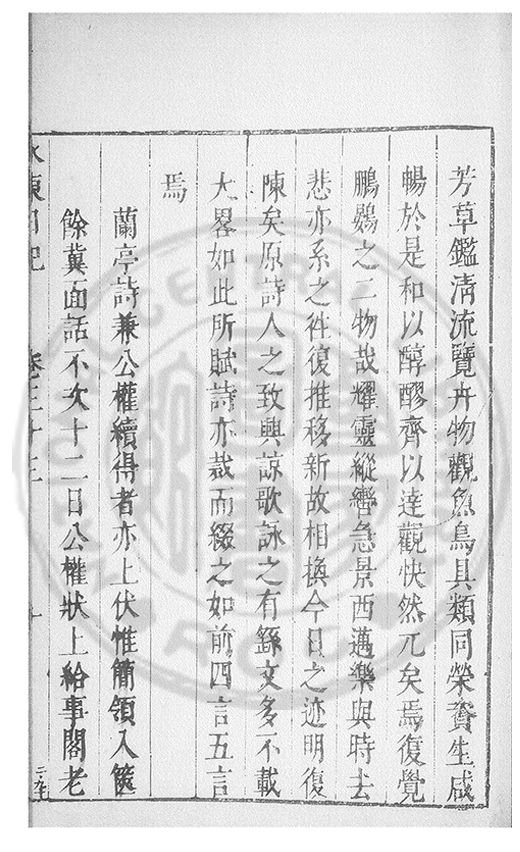 芳草鑑清流覽卉物觀魚鳥具類同榮資生咸
暢於是和以醇醪齊以達觀快然兀矣焉復覺
鵬鷃之二物哉耀靈縱轡急景西邁樂與時去
悲亦系之徃復推移新故相換今日之迹明復
陳矣原詩人之致興諒歌詠之有繇文多不載
大畧如此所賦詩亦裁而綴之如前四言五言
焉
蘭亭詩兼公權續得者亦上伏惟簡領入篋
餘冀面話不次十二日公權狀上給事閣老
水東日記 卷三十三 十